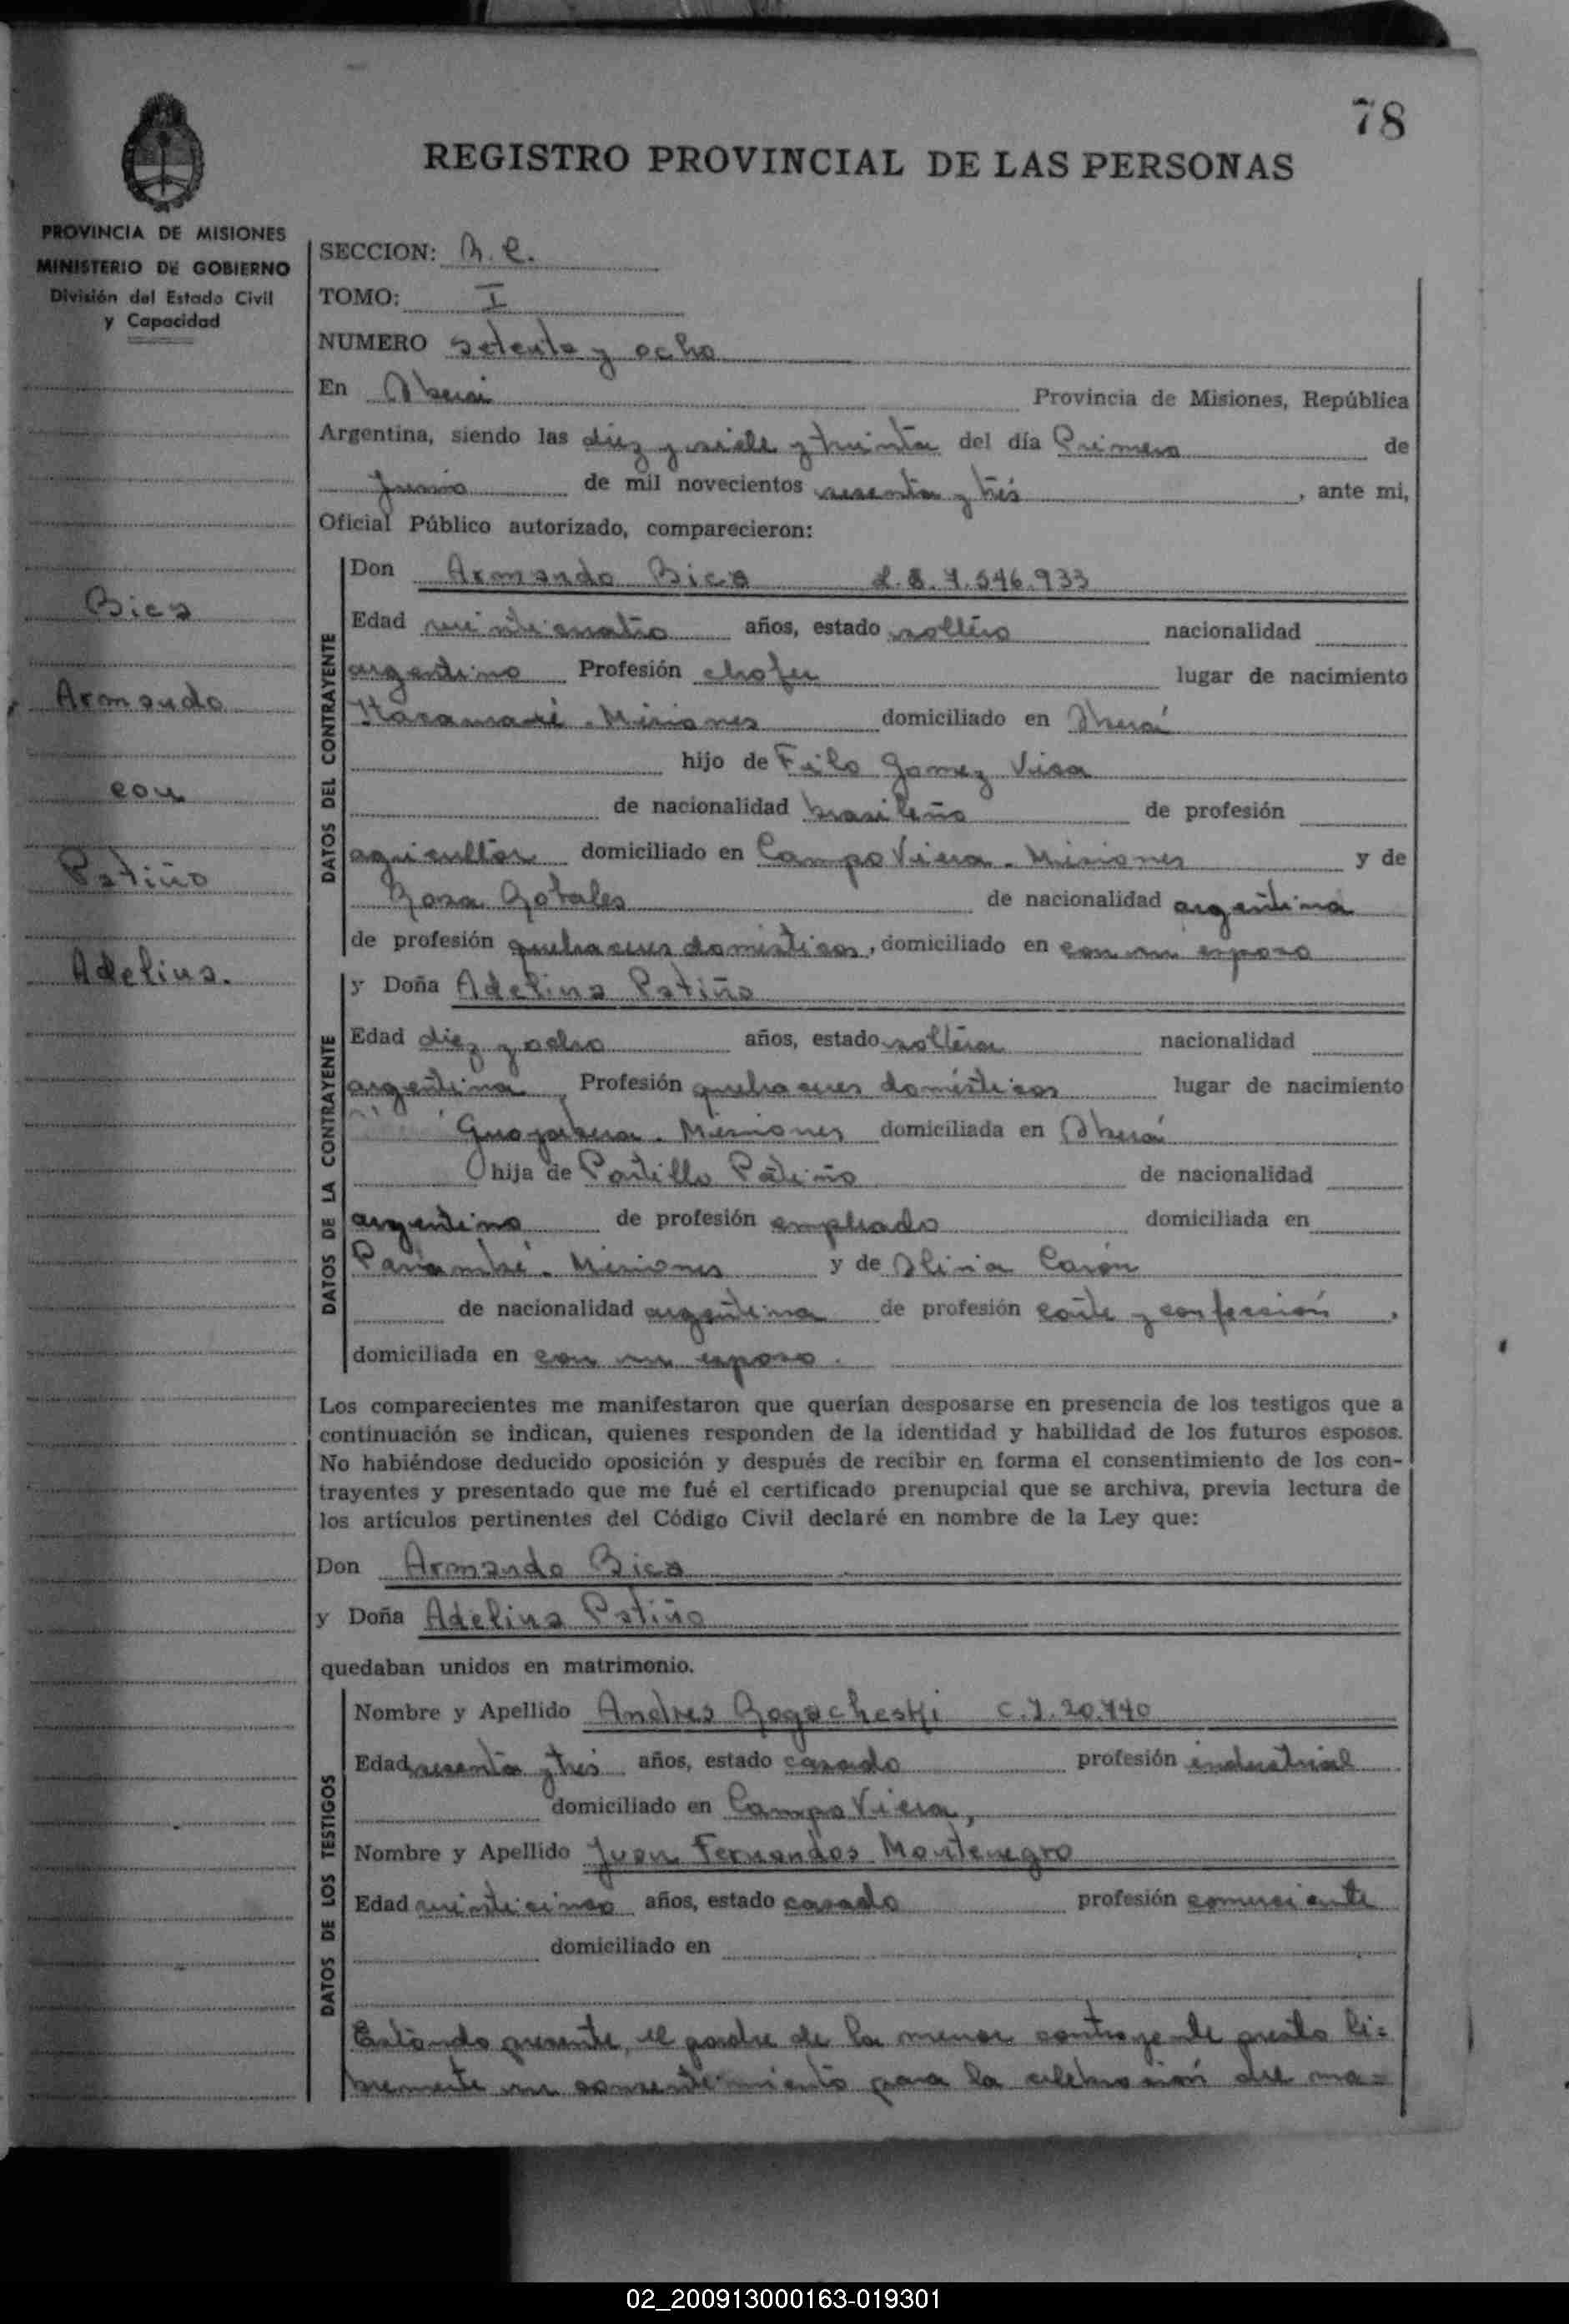 78
REGISTRO PROVINCIAL DE LAS PERSONAS
PROVINCIA DE MISIONES
MINISTERIO DE GOBIERNO
División del Estado Civil
y Capacidad
Bica
Armando
con
Patiño
Adelina.
SECCION:
TOMO: I
NUMERO setenta y ocho
En Oberá Provincia de Misiones, República
Argentina, siendo las diez y siete y treinta del día Primero de
Junio de mil novecientos sesenta y trés, ante mi,
Oficial Público autorizado, comparecieron:
DATOS DEL CONTRAYENTE
Don Armando Bica 7.546.933
Edad veinticuatro años, estado soltero nacionalidad
argentino Profesión chofer lugar de nacimiento
Misiones domiciliado en Oberá
hijo de Gomez Vica
de nacionalidad brasileño de profesión
agricultor domiciliado en Campo Viera - Misiones y de
Rosa de nacionalidad argentina
de profesión quehaceres domésticos, domiciliado en con su esposo
DATOS DE LA CONTRAYENTE
y Doña Adelina Patiño
Edad diez y ocho años, estado soltera nacionalidad
argentina Profesión quehaceres domésticos lugar de nacimiento
Guayabera - Misiones domiciliada en Oberá
hija de Portillo Patiño de nacionalidad
argentino de profesión empleado domiciliada en
Panambí - Misiones y de
de nacionalidad argentina de profesión corte y confección,
domiciliada en con su esposo.
Los comparecientes me manifestaron que querían desposarse en presencia de los testigos que a
continuación se indican, quienes responden de la identidad y habilidad de los futuros esposos.
No habiéndose deducido oposición y después de recibir en forma el consentimiento de los con-
trayentes y presentado que me fué el certificado prenupcial que se archiva, previa lectura de
los artículos pertinentes del Código Civil declaré en nombre de la Ley que:
Don Armando Bica
y Doña Adelina Patiño
quedaban unidos en matrimonio.
DATOS DE LOS TESTIGOS
Nombre y Apellido Andres Rogacheski C.I. 20.740
Edad sesenta y tres años, estado casado profesión industrial
domiciliado en Campo Viera,
Nombre y Apellido Juan Fernandos Montenegro
Edad veinticinco años, estado casado profesión comerciante
domiciliado en
Estando presente, el padre de la menor contrayente presta li=
bremente su consentimiento para la celebración del ma=
02_200913000163-019301